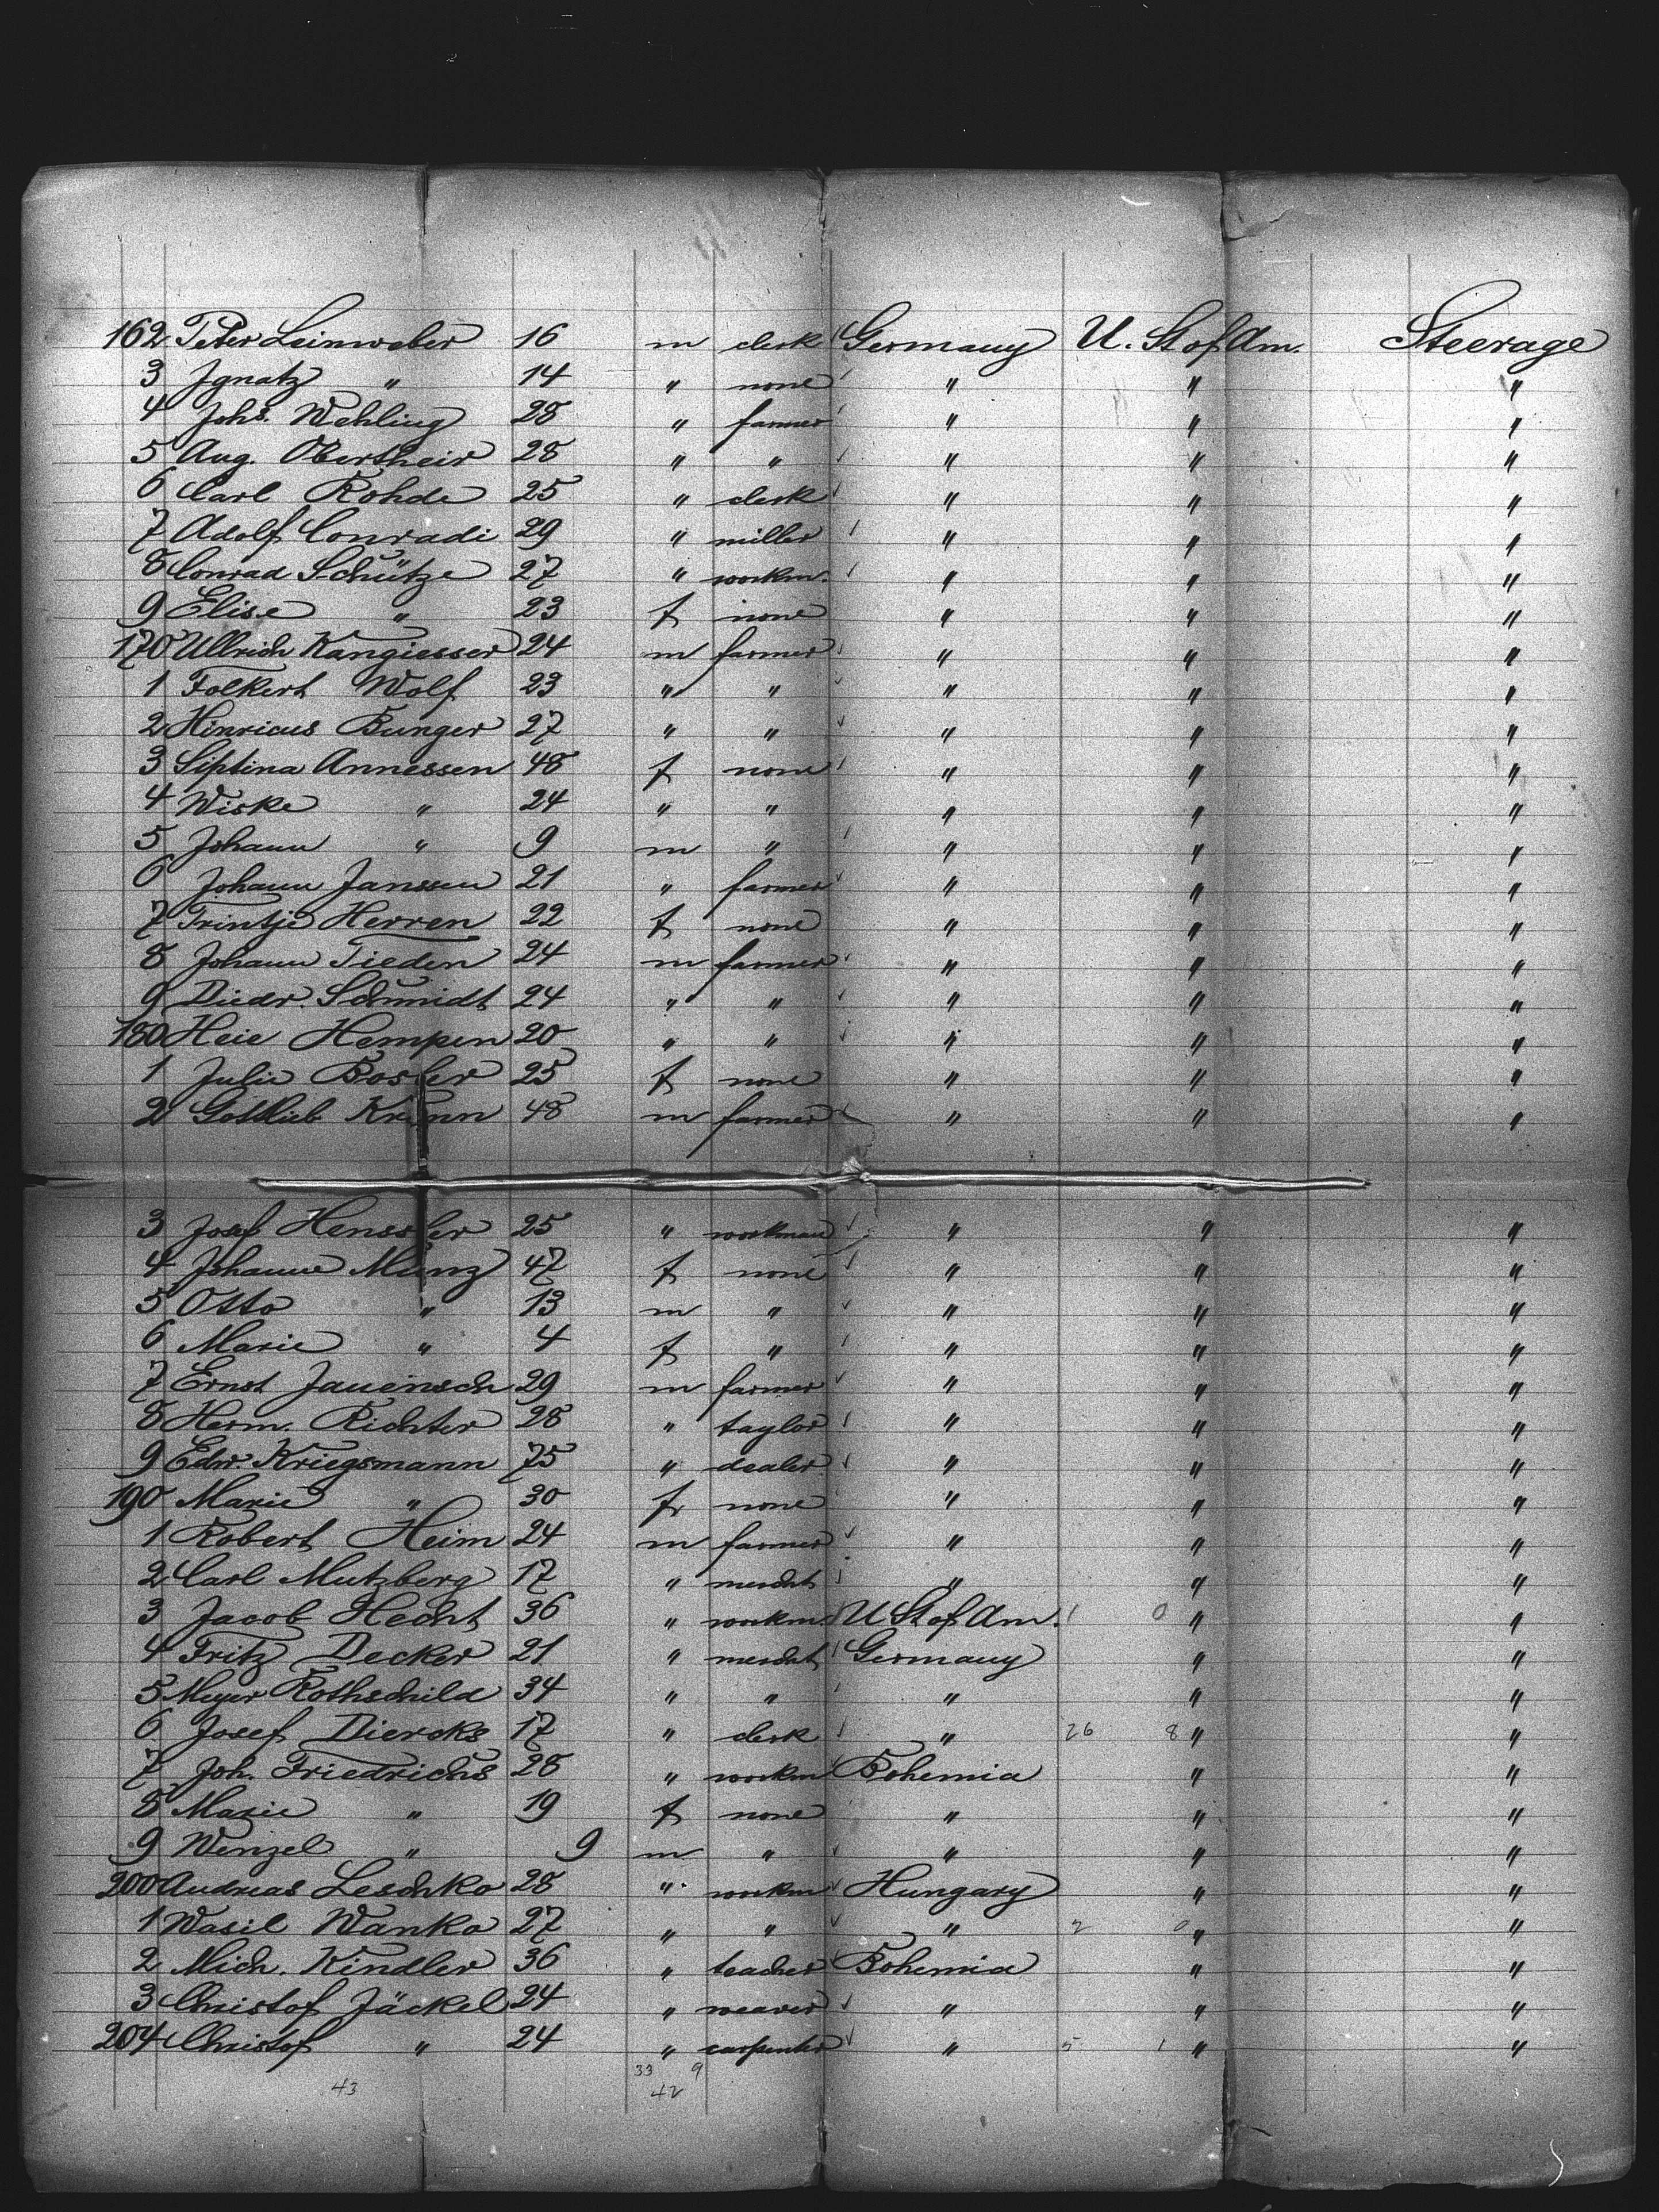 162 Peter Leinweber 16 m clerk Germany U. St of Am. Steerage
3 Ignatz " 14 " none " " "
4 Johs. Wehling 28 " farmer " " "
5 Aug. Obertheir 28 " " " " "
6 Carl Rohde 25 " clerk " " "
7 Adolf Conradi 29 " miller " " "
8 Conrad Schütze 27 " workm. " " "
9 Elise " 23 f none " " "
170 Ullrich Kangiesser 24 m farmer " " "
1 Folkert Wolf 23 " " " " "
2 Hinricus Bunger 27 " " " " "
3 Siptina Annessen 48 f none " " "
4 Wiske " 24 " " " " "
5 Johann " 9 m " " " "
6 Johann Janssen 21 " farmer " " "
7 Trintje Herren 22 f none " " "
8 Johann Tieden 24 m farmer " " "
9 Diedr. Schmidt 24 " " " " "
180 Heie Hempen 20 " " " " "
1 Julie Bosler 25 f none " " "
2 Gottlieb 48 m farmer " " "
3 Josef Henssler 25 " workman " " "
4 Johanne Munz 47 f none " " "
5 Otto " 13 m " " " "
6 Marie " 4 f " " " "
7 Ernst Jauensch 29 m farmer " " "
8 Herm. Richter 28 " taylor " " "
9 Edw. Kriegsmann 75 " dealer " " "
190 Marie " 30 f none " " "
1 Robert Heim 24 m farmer " " "
2 Carl Mutzberg 17 " mercht " " "
3 Jacob Hecht 36 " workm. U St of Am. 1 0 " "
4 Fritz Decker 21 " mercht Germany " "
5 Meyer Rothschild 34 " " " " "
6 Josef Diercks 17 " clerk " 26 8 " "
7 Joh. Friedrichs 28 " workm Bohemia " "
8 Marie " 19 f none " " "
9 Wenzel " 9 m " " " "
200 Andreas Leschko 28 " workm Hungary " "
1 Wasil Wanko 27 " " " 2 0 " "
2 Mich. Kindler 36 " teacher Bohemia " "
3 Christof Jäckel 24 " weaver " " "
204 Christof " 24 " carpenter " 5 1 " "
33 9
43 42